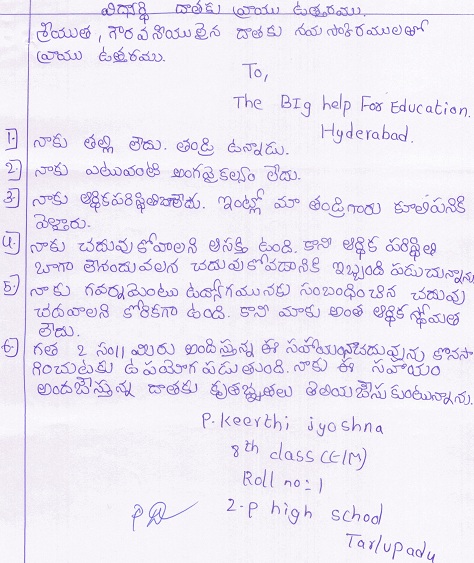 విద్యార్థి దాతకు వ్రాయు ఉత్తరము.
శ్రీయుత, గౌరవనీయులైన దాతకు నమస్కారములతో
వ్రాయు ఉత్తరము.
To,
The BIg help For Education.
Hyderabad.
1. నాకు తల్లి లేదు. తండ్రి ఉన్నాడు.
2. నాకు ఎటువంటి అంగవైకల్యం లేదు.
3. నాకు ఆర్థికపరిస్థితి లేదు. ఇంట్లో మా తండ్రిగారు కూలిపనికి
వెళ్తారు.
4. నాకు చదువుకోవాలని ఆసక్తి ఉంది. కాని ఆర్థిక పరిస్థితి
బాగా లేనందువలన చదువుకోవడానికి ఇబ్బంది పడుచున్నాను
5. నాకు గవర్నమెంటు ఉద్యోగమునకు సంబంధించిన చదువు
చదవాలని కోరికగా ఉంది. కాని మాకు అంత ఆర్థిక స్థోమత
లేదు.
6. గత 2 సం|| మీరు అందిస్తున్న ఈ సహాయం చదువును కొనసా
గించుటకు ఉపయోగపడుతుంది. నాకు ఈ సహాయం
అందజేస్తున్న దాతకు కృతజ్ఞతలు తెలియజేసుకుంటున్నాను.
P. Keerthi jyoshna
8th class (E/M)
Roll no: 1
Z.P high school
Tarlupadu